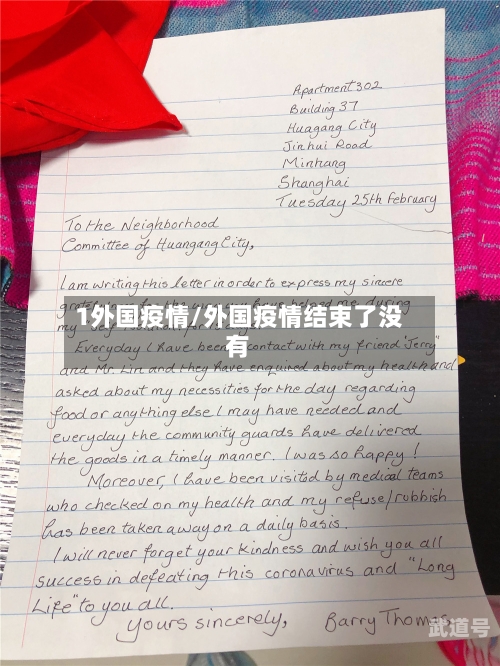 Apartment 302
Building 37
Huagang City
Jinhui Road
Minhang
Shanghai
Tuesday 25th February
To the Neighborhood
Committee of Huangang City,
I am writing this letter in order to express my sincere
during
my
1外国疫情/外国疫情结束了没
有
Everyday I have been contact with my friend "Jerry"
and Mr. Lin and they have enquired about my health and
asked about my necessities for the day regarding
food or anything else I may have needed and
everyday the community guards have delivered
the goods in a timely manner. I was so happy!
Moreover, I have been visited by medical teams
who checked on my health and my refuse/rubbish
has been taken away on a daily basis.
I will never forget your kindness and wish you all
success in defeating this coronavirus and "Long
Life" to you all.
yours sincerely, Barry Thomas
武道号